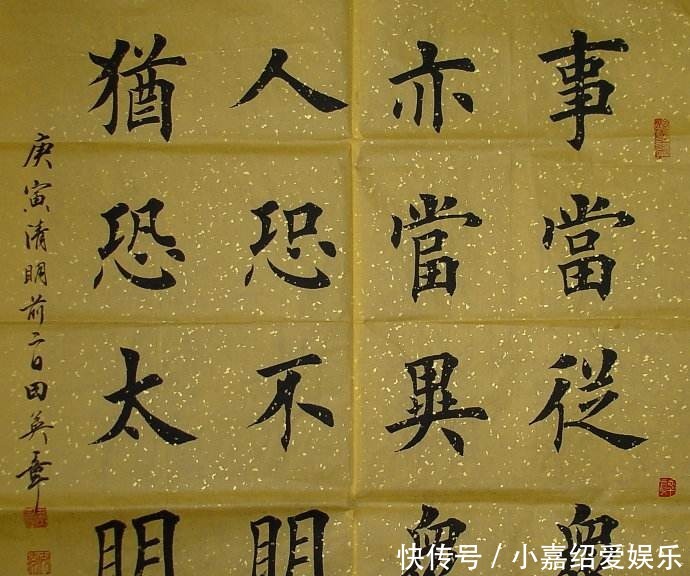 事當從衆
亦當異衆
人恐不明
猶恐太明
庚寅清明前二日田英章
快传号 / 小嘉绍爱娱乐